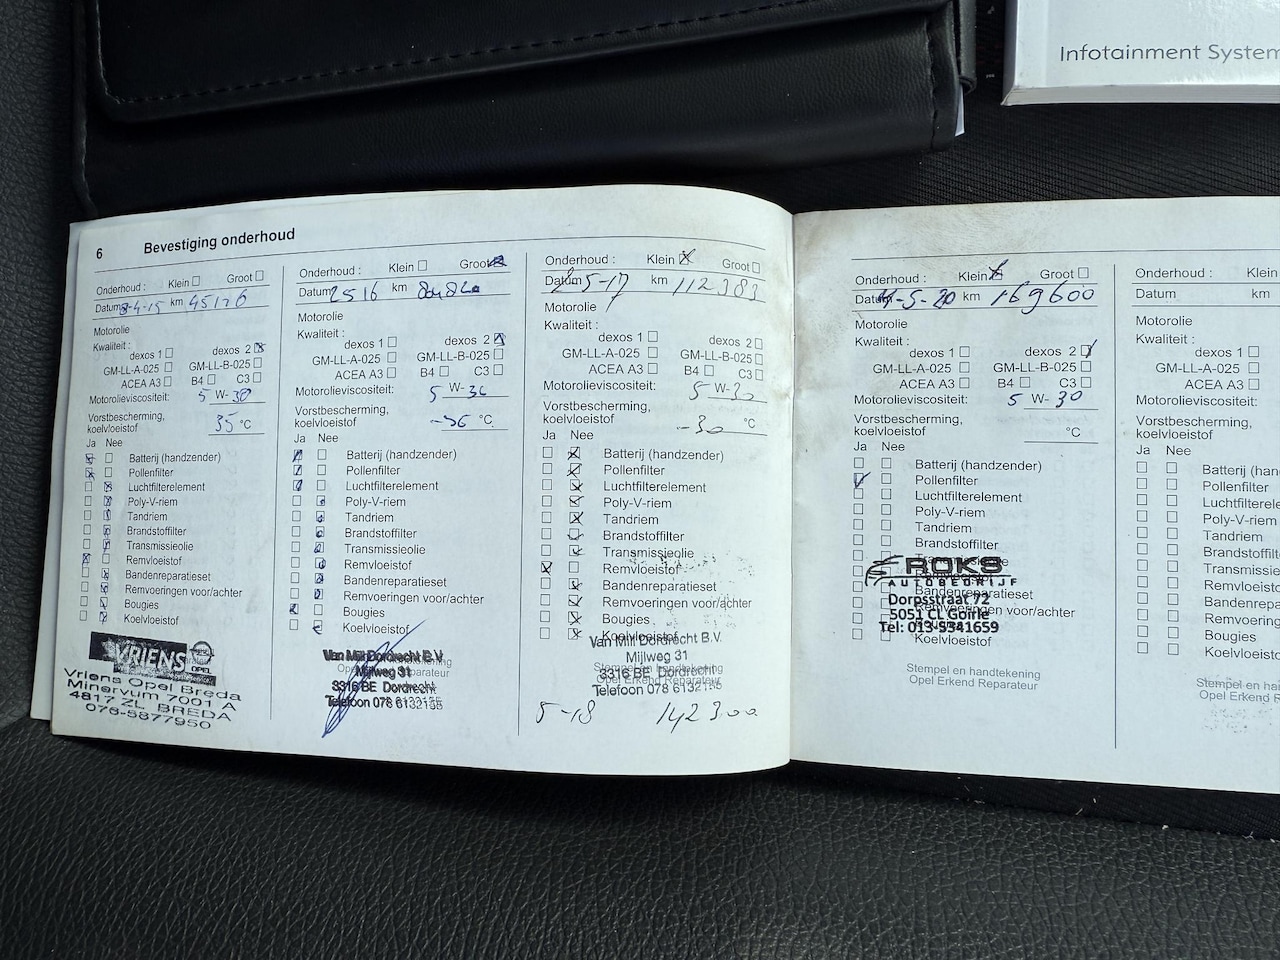 Infotainment System
6 Bevestiging onderhoud
Onderhoud : Klein Groot
Datum 8-4-15 km 45176
Motorolie
Kwaliteit :
dexos 1 dexos 2
GM-LL-A-025 GM-LL-B-025
ACEA A3 B4 C3
Motorolieviscositeit: 5 W- 30
Vorstbescherming,
koelvloeistof 35 °C
Ja Nee
Batterij (handzender)
Pollenfilter
Luchtfilterelement
Poly-V-riem
Tandriem
Brandstoffilter
Transmissieolie
Remvloeistof
Bandenreparatieset
Remvoeringen voor/achter
Bougies
Koelvloeistof
VRIENS OPEL
Vriens Opel Breda
Minervum 7001 A
4817 ZL BREDA
076-5877950
Onderhoud : Klein Groot
Datum 2516 km
Motorolie
Kwaliteit :
dexos 1 dexos 2
GM-LL-A-025 GM-LL-B-025
ACEA A3 B4 C3
Motorolieviscositeit: 5 W-
Vorstbescherming,
koelvloeistof -36 °C
Ja Nee
Batterij (handzender)
Pollenfilter
Luchtfilterelement
Poly-V-riem
Tandriem
Brandstoffilter
Transmissieolie
Remvloeistof
Bandenreparatieset
Remvoeringen voor/achter
Bougies
Koelvloeistof
Van Mill Dordrecht B.V.
Mijlweg 31
3316 BE Dordrecht
Telefoon 078 6132155
Onderhoud : Klein Groot
Datum 2 5-17 km 112383
Motorolie
Kwaliteit :
dexos 1 dexos 2
GM-LL-A-025 GM-LL-B-025
ACEA A3 B4 C3
Motorolieviscositeit: 5 W- 30
Vorstbescherming,
koelvloeistof -30 °C
Ja Nee
Batterij (handzender)
Pollenfilter
Luchtfilterelement
Poly-V-riem
Tandriem
Brandstoffilter
Transmissieolie
Remvloeistof
Bandenreparatieset
Remvoeringen voor/achter
Bougies
Koelvloeistof
Van Mill Dordrecht B.V.
Mijlweg 31
Stempel en handtekening
3316 BE Dordrecht
Opel Erkend Reparateur
Telefoon 078 6132155
5-18 142300
Onderhoud : Klein Groot
Datum -5-20 km 169600
Motorolie
Kwaliteit :
dexos 1 dexos 2
GM-LL-A-025 GM-LL-B-025
ACEA A3 B4 C3
Motorolieviscositeit: 5 W- 30
Vorstbescherming,
koelvloeistof °C
Ja Nee
Batterij (handzender)
Pollenfilter
Luchtfilterelement
Poly-V-riem
Tandriem
Brandstoffilter
ROKS
AUTOBEDRIJF
Bandenreparatieset
Dorpsstraat 72
Remvoeringen voor/achter
5051 CL Goirle
Tel: 013-5341659
Koelvloeistof
Stempel en handtekening
Opel Erkend Reparateur
Onderhoud : Klein
Datum km
Motorolie
Kwaliteit :
dexos 1
GM-LL-A-025
ACEA A3
Motorolieviscositeit:
Vorstbescherming,
koelvloeistof
Ja Nee
Batterij (han
Pollenfilter
Luchtfilterele
Poly-V-riem
Tandriem
Brandstoffilt
Transmissie
Remvloeisto
Bandenrepa
Remvoering
Bougies
Koelvloeisto
Stempel en ha
Opel Erkend R